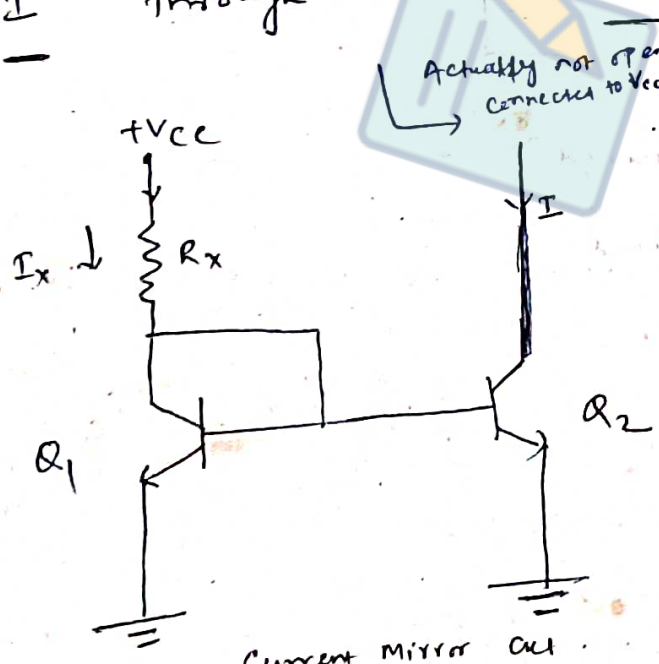 I Through
Actually not open
Connected to Vcc
+VCC
I
Ix
Rx
Q1
Q2
Current Mirror Ckt.